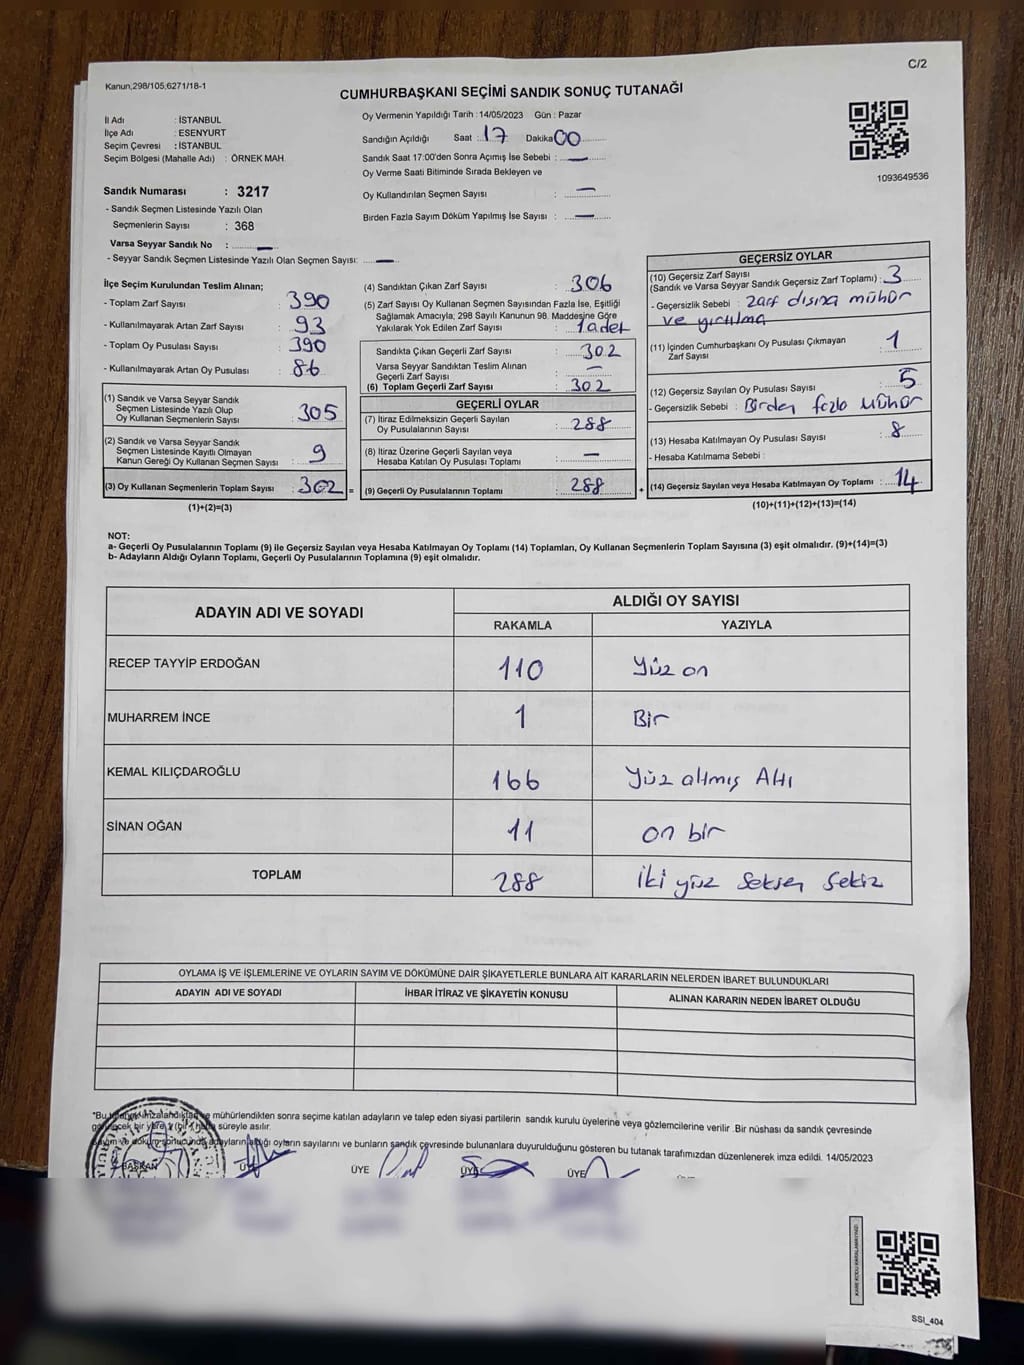 C/2
Kanun,298/105,6271/18-1
CUMHURBAŞKANI SEÇİMİ SANDIK SONUÇ TUTANAĞI
İl Adı : İSTANBUL
İlçe Adı : ESENYURT
Seçim Çevresi : İSTANBUL
Seçim Bölgesi (Mahalle Adı) : ÖRNEK MAH.
Sandık Numarası : 3217
- Sandık Seçmen Listesinde Yazılı Olan
Seçmenlerin Sayısı : 368
Varsa Seyyar Sandık No : —
- Seyyar Sandık Seçmen Listesinde Yazılı Olan Seçmen Sayısı: —
Oy Vermenin Yapıldığı Tarih : 14/05/2023 Gün : Pazar
Sandığın Açıldığı Saat : 17 Dakika 00
Sandık Saat 17:00'den Sonra Açımış İse Sebebi : —
Oy Verme Saati Bitiminde Sırada Bekleyen ve
Oy Kullandırılan Seçmen Sayısı : —
Birden Fazla Sayım Döküm Yapılmış İse Sayısı : —
1093649536
İlçe Seçim Kurulundan Teslim Alınan;
- Toplam Zarf Sayısı : 390
- Kullanılmayarak Artan Zarf Sayısı : 93
- Toplam Oy Pusulası Sayısı : 390
- Kullanılmayarak Artan Oy Pusulası : 86
(1) Sandık ve Varsa Seyyar Sandık
Seçmen Listesinde Yazılı Olup
Oy Kullanan Seçmenlerin Sayısı : 305
(2) Sandık ve Varsa Seyyar Sandık
Seçmen Listesinde Kayıtlı Olmayan
Kanun Gereği Oy Kullanan Seçmen Sayısı : 9
(3) Oy Kullanan Seçmenlerin Toplam Sayısı : 302 =
(1)+(2)=(3)
(4) Sandıktan Çıkan Zarf Sayısı : 306
(5) Zarf Sayısı Oy Kullanan Seçmen Sayısından Fazla İse, Eşitliği
Sağlamak Amacıyla, 298 Sayılı Kanunun 98. Maddesine Göre
Yakılarak Yok Edilen Zarf Sayısı : 1 adet
Sandıkta Çıkan Geçerli Zarf Sayısı : 302
Varsa Seyyar Sandıktan Teslim Alınan
Geçerli Zarf Sayısı : —
(6) Toplam Geçerli Zarf Sayısı : 302
GEÇERLİ OYLAR
(7) İtiraz Edilmeksizin Geçerli Sayılan
Oy Pusulalarının Sayısı : 288
(8) İtiraz Üzerine Geçerli Sayılan veya
Hesaba Katılan Oy Pusulası Toplamı : —
(9) Geçerli Oy Pusulalarının Toplamı : 288 +
GEÇERSİZ OYLAR
(10) Geçersiz Zarf Sayısı
(Sandık ve Varsa Seyyar Sandık Geçersiz Zarf Toplamı) : 3
- Geçersizlik Sebebi : zarf dışına mühür
ve yırtılma
(11) İçinden Cumhurbaşkanı Oy Pusulası Çıkmayan
Zarf Sayısı : 1
(12) Geçersiz Sayılan Oy Pusulası Sayısı : 5
- Geçersizlik Sebebi : Birden fazla Mühür
(13) Hesaba Katılmayan Oy Pusulası Sayısı : 8
- Hesaba Katılmama Sebebi :
(14) Geçersiz Sayılan veya Hesaba Katılmayan Oy Toplamı : 14
(10)+(11)+(12)+(13)=(14)
NOT:
a- Geçerli Oy Pusulalarının Toplamı (9) ile Geçersiz Sayılan veya Hesaba Katılmayan Oy Toplamı (14) Toplamları, Oy Kullanan Seçmenlerin Toplam Sayısına (3) eşit olmalıdır. (9)+(14)=(3)
b- Adayların Aldığı Oyların Toplamı, Geçerli Oy Pusulalarının Toplamına (9) eşit olmalıdır.
ADAYIN ADI VE SOYADI
ALDIĞI OY SAYISI
RAKAMLA YAZIYLA
RECEP TAYYİP ERDOĞAN 110 Yüz on
MUHARREM İNCE 1 Bir
KEMAL KILIÇDAROĞLU 166 Yüz altmış Altı
SİNAN OĞAN 11 on bir
TOPLAM 288 İki yüz Seksen Sekiz
OYLAMA İŞ VE İŞLEMLERİNE VE OYLARIN SAYIM VE DÖKÜMÜNE DAİR ŞİKAYETLERLE BUNLARA AİT KARARLARIN NELERDEN İBARET BULUNDUKLARI
ADAYIN ADI VE SOYADI İHBAR İTİRAZ VE ŞİKAYETİN KONUSU ALINAN KARARIN NEDEN İBARET OLDUĞU
"Bu mühürlendikten sonra seçime katılan adayların ve talep eden siyasi partilerin sandık kurulu üyelerine veya gözlemcilerine verilir .Bir nüshası da sandık çevresinde
süreyle asılır.
adayların aldığı oyların sayılarını ve bunların sandık çevresinde bulunanlara duyurulduğunu gösteren bu tutanak tarafımızdan düzenlenerek imza edildi. 14/05/2023
BAŞKAN ÜYE ÜYE ÜYE ÜYE
SSI_404